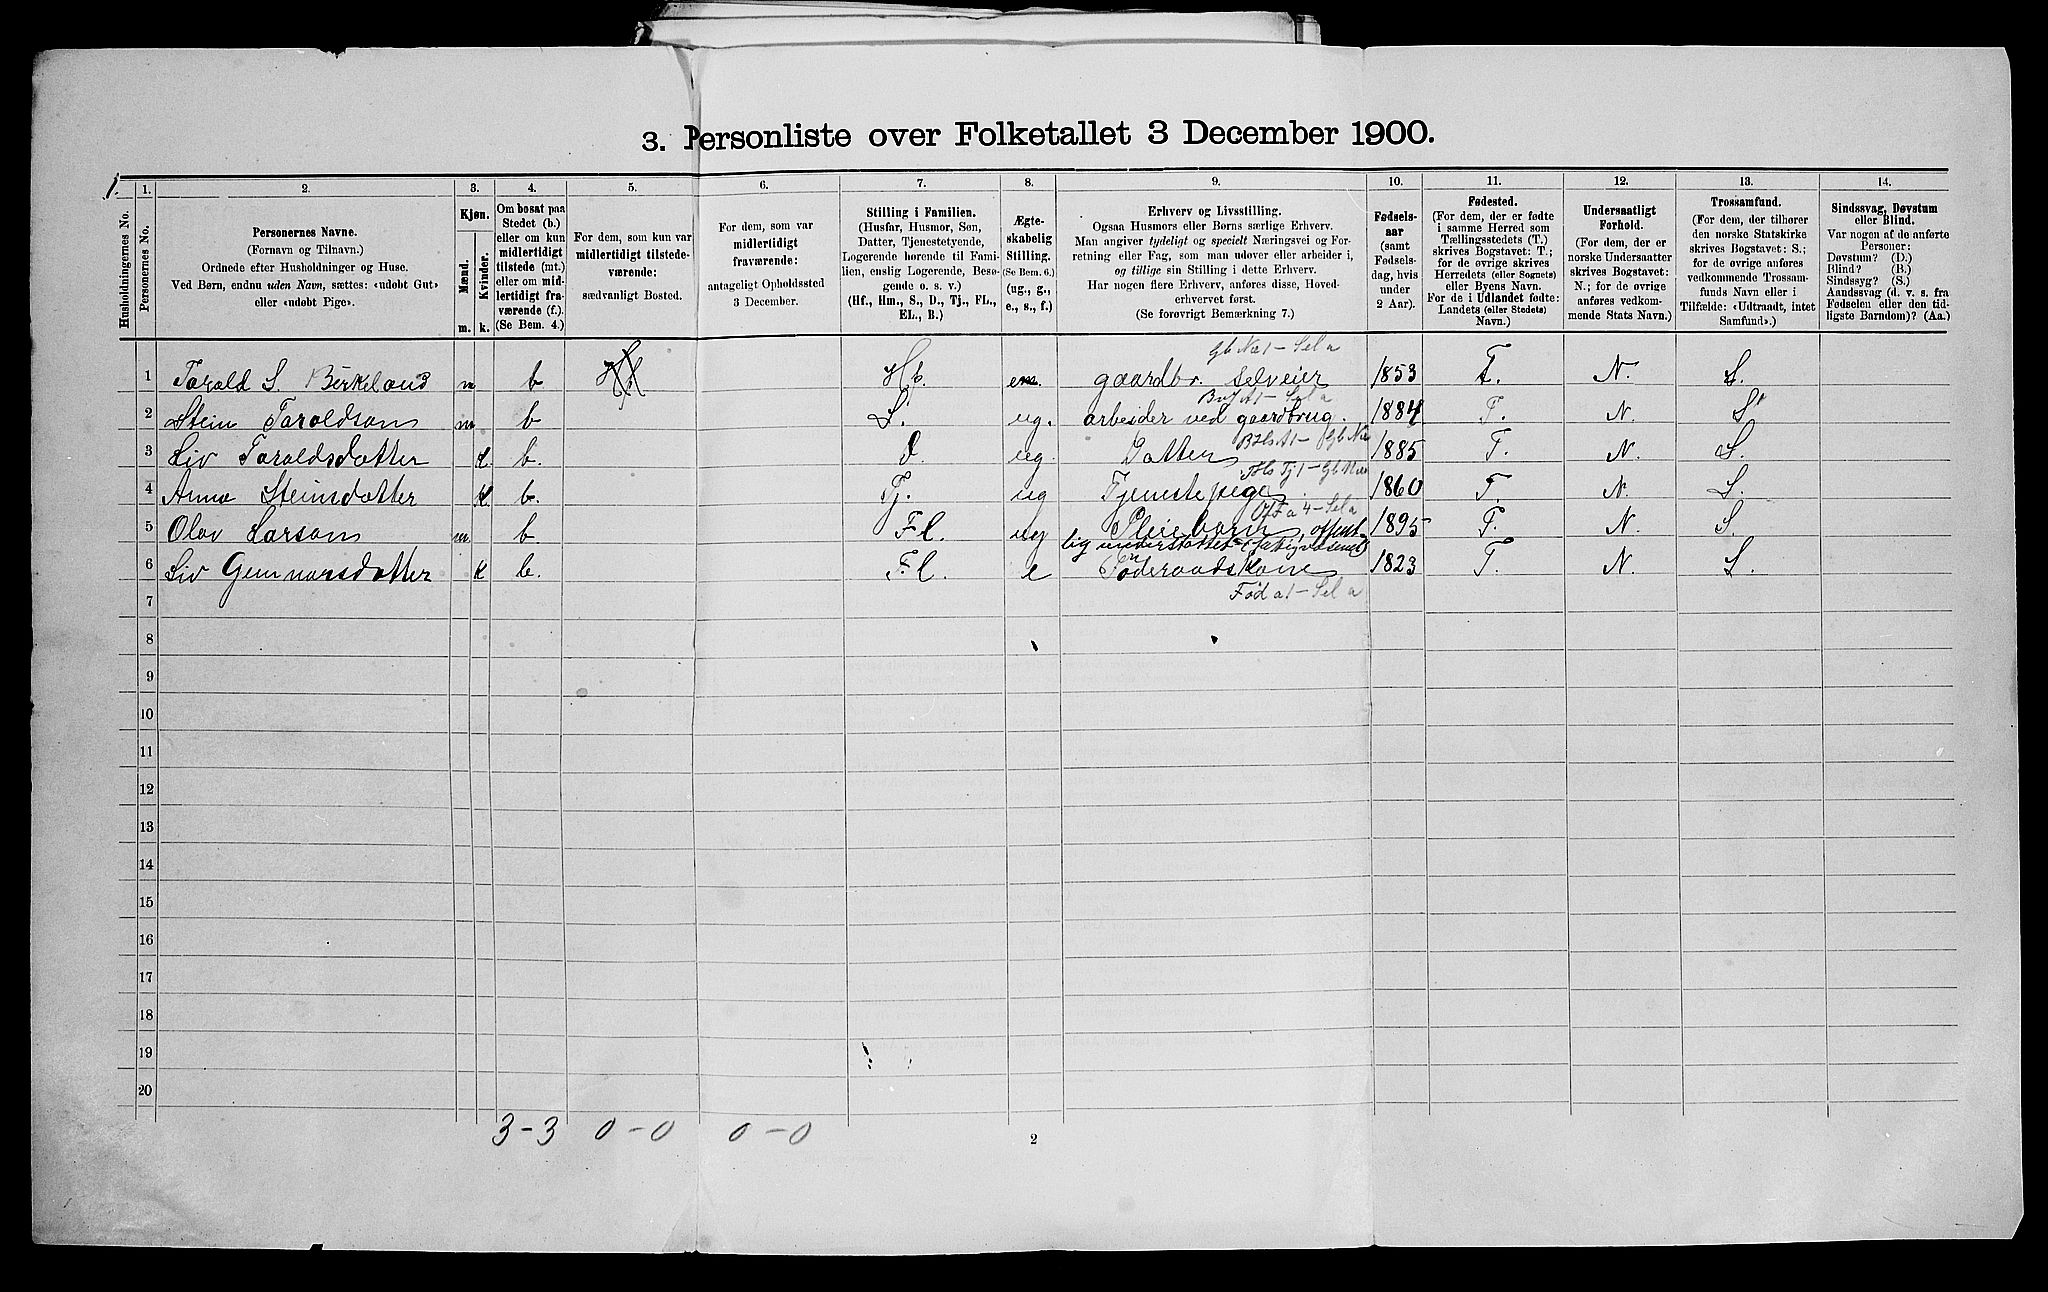 3. Personliste over Folketallet 3 December 1900.
1.
1. 2. 3. 4. 5. 6. 7. 8. 9. 10. 11. 12. 13. 14.
Husholdningernes No.
Personernes No.
Personernes Navne.
(Fornavn og Tilnavn.)
Ordnede efter Husholdninger og Huse.
Ved Børn, endnu uden Navn, sættes: «udøbt Gut»
eller «udøbt Pige».
Kjøn.
Mænd.
Kvinder.
m. k.
Om bosat paa
Stedet (b.)
eller om kun
midlertidigt
tilstede (mt.)
eller om mid-
lertidigt fra-
værende (f.).
(Se Bem. 4.)
For dem, som kun var
midlertidigt tilstede-
værende:
sædvanligt Bosted.
For dem, som var
midlertidigt
fraværende:
antageligt Opholdssted
3 December.
Stilling i Familien.
(Husfar, Husmor, Søn,
Datter, Tjenestetyende,
Logerende hørende til Fami-
lien, enslig Logerende, Besø-
gende o. s. v.)
(Hf., Hm., S., D., Tj., FL.,
EL., B.)
Ægte-
skabelig
Stilling.
(Se Bem. 6.)
(ug., g.,
e., s., f.)
Erhverv og Livsstilling.
Ogsaa Husmors eller Børns særlige Erhverv.
Man angiver tydeligt og specielt Næringsvei og For-
retning eller Fag, som man udøver eller arbeider i,
og tillige sin Stilling i dette Erhverv.
Har nogen flere Erhverv, anføres disse, Hoved-
erhvervet først.
(Se forøvrigt Bemærkning 7.)
Fødsels-
aar
(samt
Fødsels-
dag, hvis
under
2 Aar).
Fødested.
(For dem, der er fødte
i samme Herred som
Tællingsstedets (T.)
skrives Bogstavet: T.;
for de øvrige skrives
Herredets (eller Sognets)
eller Byens Navn.
For de i Udlandet fødte:
Landets (eller Stedets)
Navn.)
Undersaatligt
Forhold.
(For dem, der er
norske Undersaatter
skrives Bogstavet:
N.; for de øvrige
anføres vedkom-
mende Stats Navn.)
Trossamfund.
(For dem, der tilhører
den norske Statskirke
skrives Bogstavet: S.;
for de øvrige anføres
vedkommende Trossam-
funds Navn eller i
Tilfælde: «Udtraadt, intet
Samfund».)
Sindssvag, Døvstum
eller Blind.
Var nogen af de anførte
Personer:
Døvstum? (D.)
Blind? (B.)
Sindssyg? (S.)
Aandssvag (d. v. s. fra
Fødselen eller den tid-
ligste Barndom)? (Aa.)
Gb Na1 – Sela
1 Torald S. Birkeland m b Hf. e gaardbr. selveier 1853 T. N. S.
2 Stein Toraldson m b S. ug. arbeider ved gaardbrug. 1884 T. N. S
3 Liv Toraldsdatter k. b. d. ug. Datter 1885 T. N. S.
4 Anne Steinsdatter k b. Tj. ug Tjenestepige 1860 T. N. S.
5 Olav Larson m. b FL. ug Pleiebarn, offent- 1895 T. N. S.
lig understøttet (fattigvæsenet)
6 Liv Gunnarsdatter k b. F.L. e Føderaadskone 1823 T. N. S.
Fød a1 – Sela
7
8
9
10
11
12
13
14
15
16
17
18
19
20
3 – 3 0 – 0 0 – 0
2